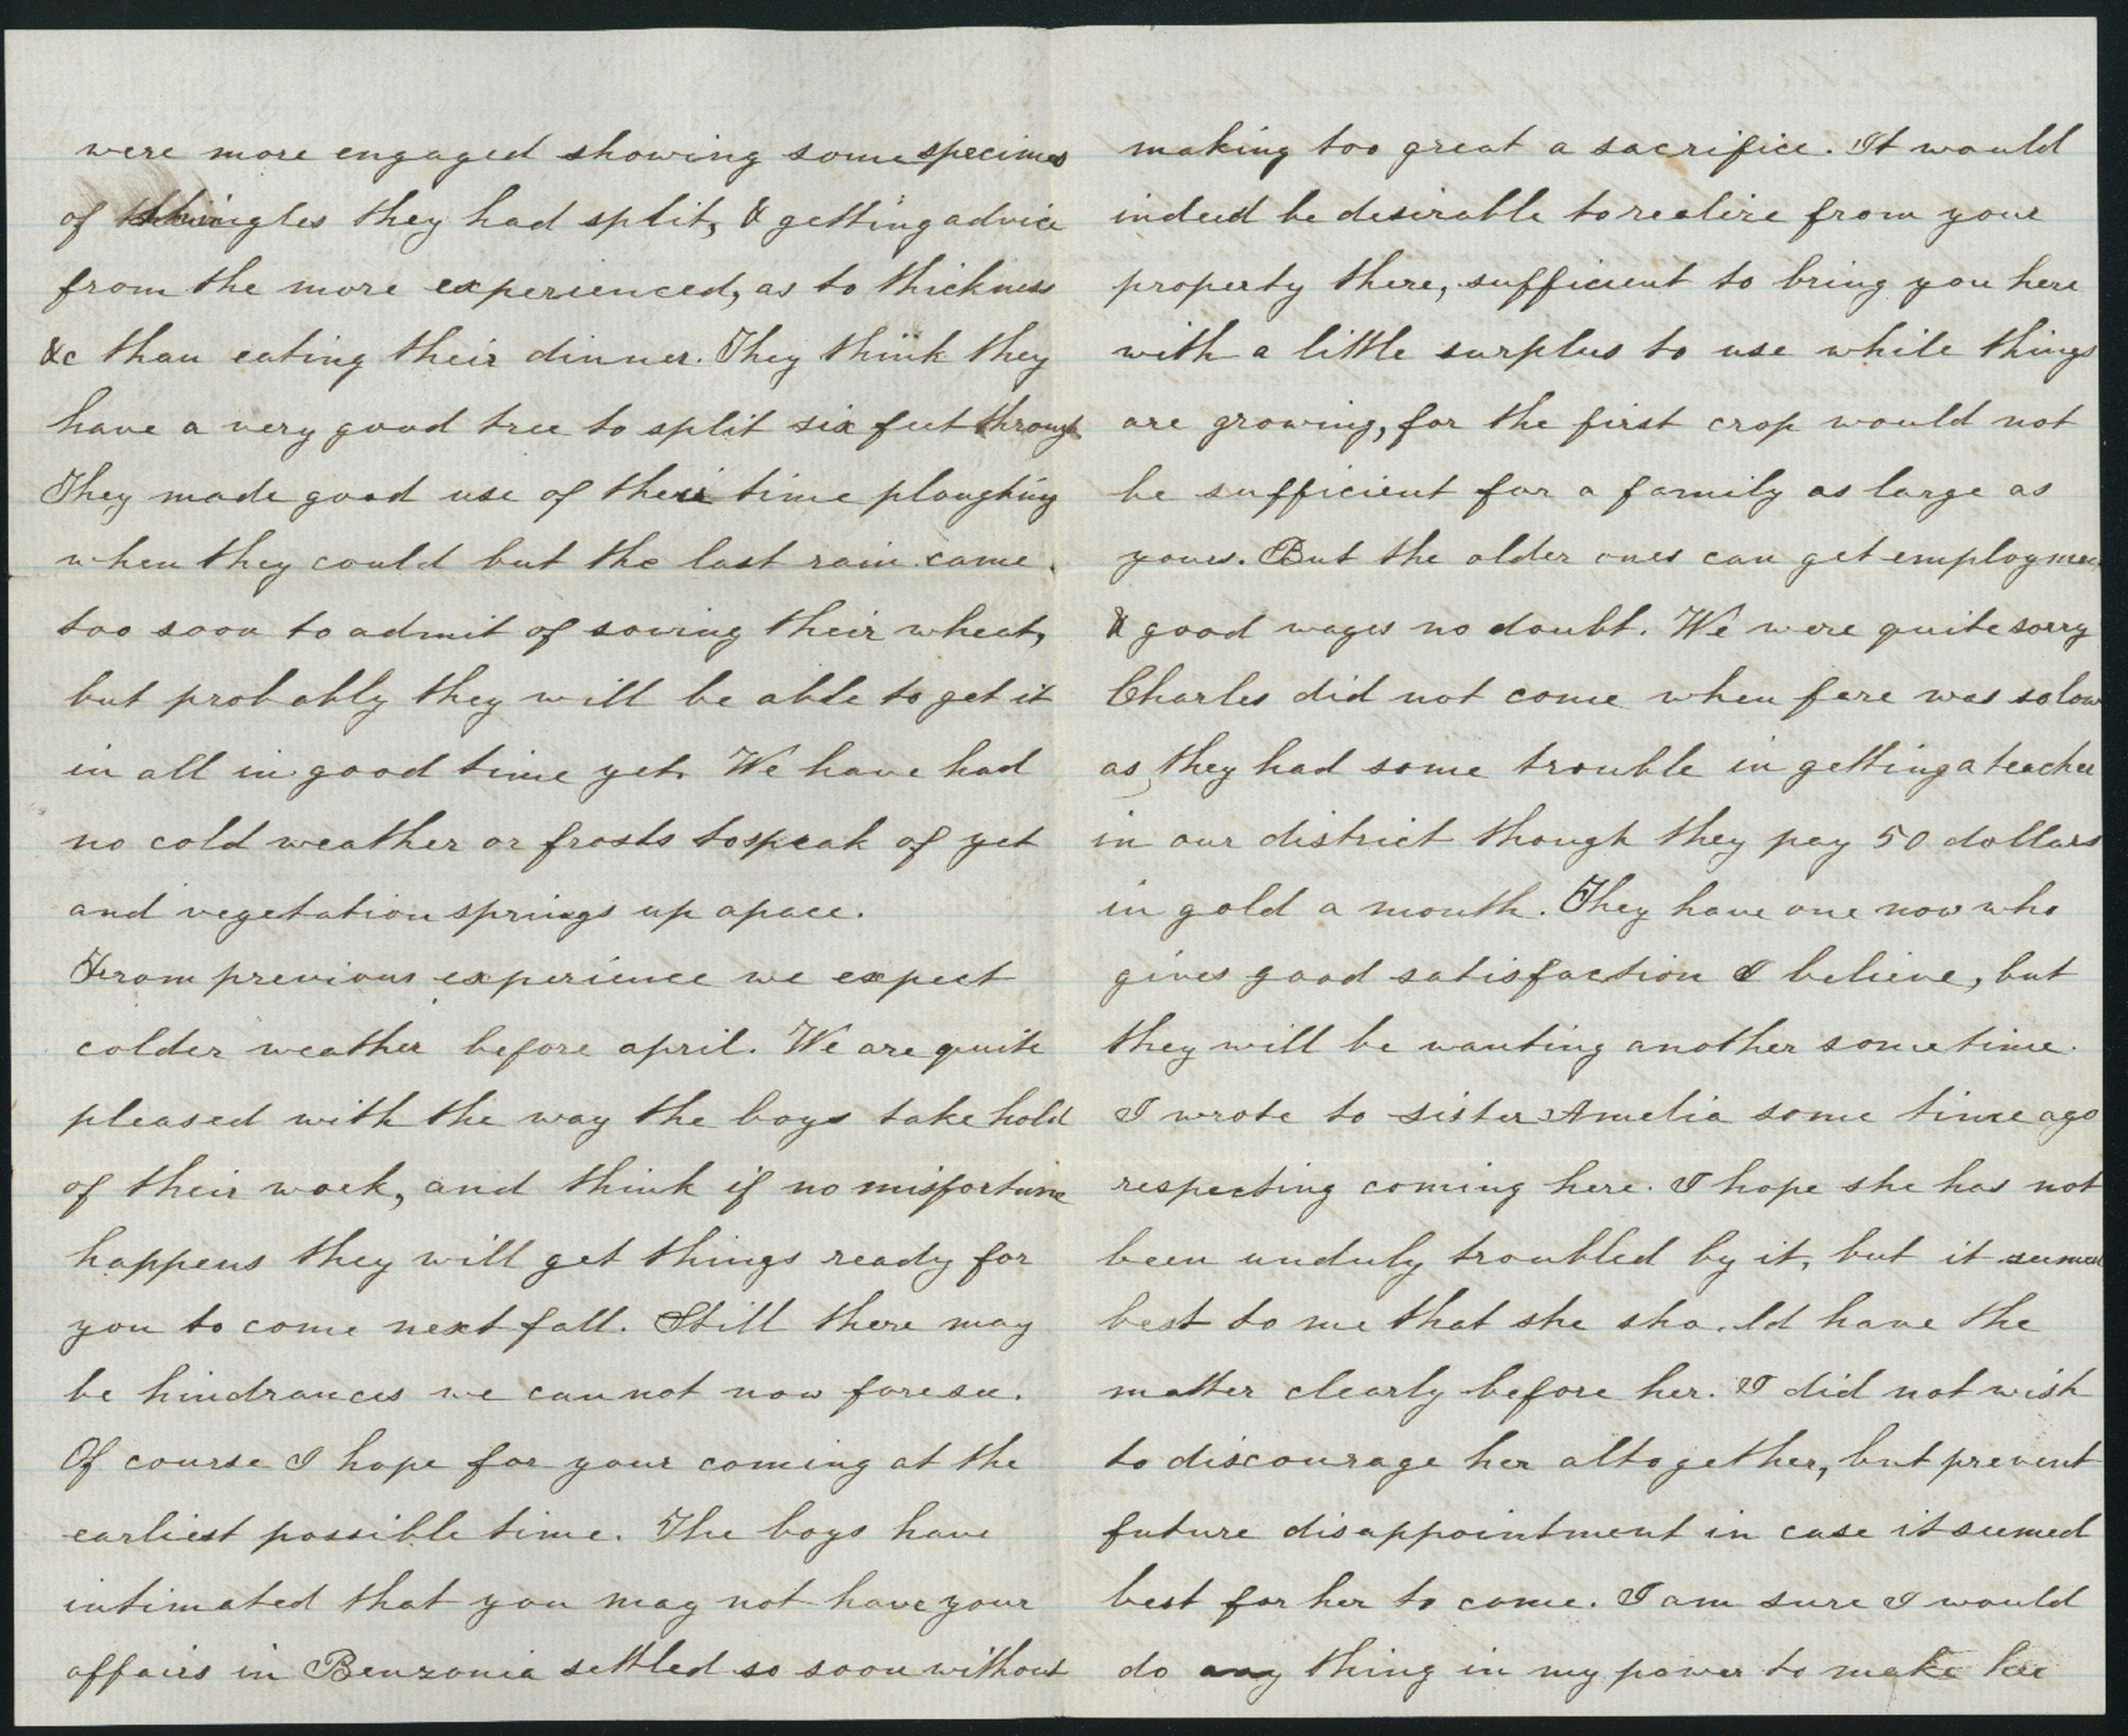 were more engaged showing some specimes
of shingles they had split, & getting advice
from the more experienced, as to thickness
&c than eating their dinner. They think they
have a very good tree to split six feet through
They made good use of their time ploughing
when they could but the last rain came
too soon to admit of sowing their wheat,
but probably they will be able to get it
in all in good time yet. We have had
no cold weather or frosts to speak of yet
and vegetation springs up apace.
From previous experience we expect
colder weather before april. We are quite
pleased with the way the boys take hold
of their work, and think if no misfortune
happens they will get things ready for
you to come next fall. Still there may
be hindrances we can not now foresee.
Of course I hope for your coming at the
earliest possible time. The boys have
intimated that you may not have your
affairs in Benzonia settled so soon without
making too great a sacrifice. It would
indeed be desirable to realize from your
property there, sufficient to bring you here
with a little surplus to use while things
are growing, for the first crop would not
be sufficient for a family as large as
yours. But the older ones can get employmen
& good wages no doubt. We were quite sorry
Charles did not come when fare was so low
as they had some trouble in getting a teacher
in our district though they pay 50 dollars
in gold a month. They have one now who
gives good satisfaction I believe, but
they will be wanting another sometime.
I wrote to sister Amelia some time ago
respecting coming here. I hope she has not
been unduly troubled by it, but it seemed
best to me that she should have the
matter clearly before her. I did not wish
to discourage her altogether, but prevent
future disappointment in case it seemed
best for her to come. I am sure I would
do any thing in my power to make her